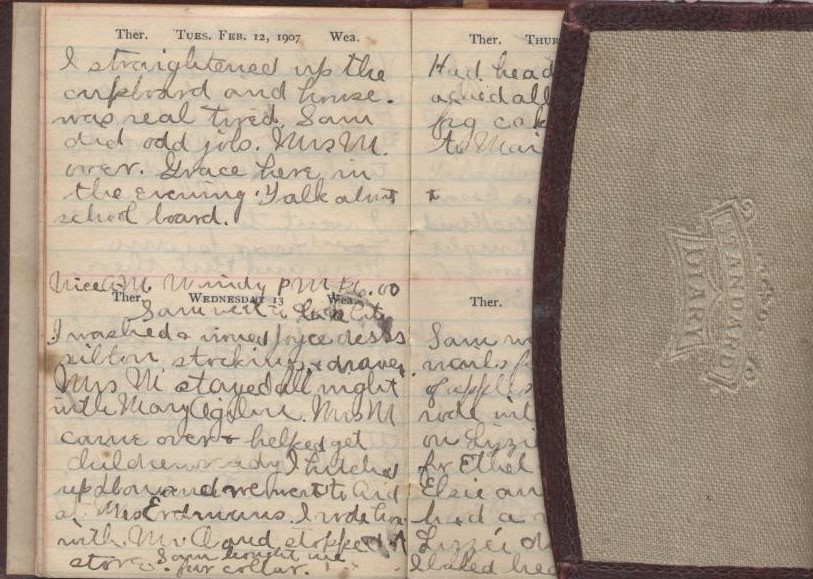 Ther. TUES. FEB. 12, 1907 Wea.
I straightened up the
cupboard and house.
was real tired. Sam
did odd jobs. Mrs M.
over. Grace here in
the evening. Talk about
school board.
Nice A.M. Windy P.M.
Ther. WEDNESDAY 13 Wea.
Sam went to City
I washed & ironed Joyce dress
stockings & drawer
Mrs M stayed all night
with Mary Ogilvie. Mrs M
came over & helped get
children ready I hitched
up and we went to Aid
at Mrs Erdmans. I rode
with Mr. and stopped
store. Sam bought me
fur collar.
Ther. THUR
Had head
ached all
big cak
to
Ther.
Sam w
of apples
rode
on Lizzi
for Ethel
Elsie an
had a
Lizzie
I baked
STANDARD
DIARY